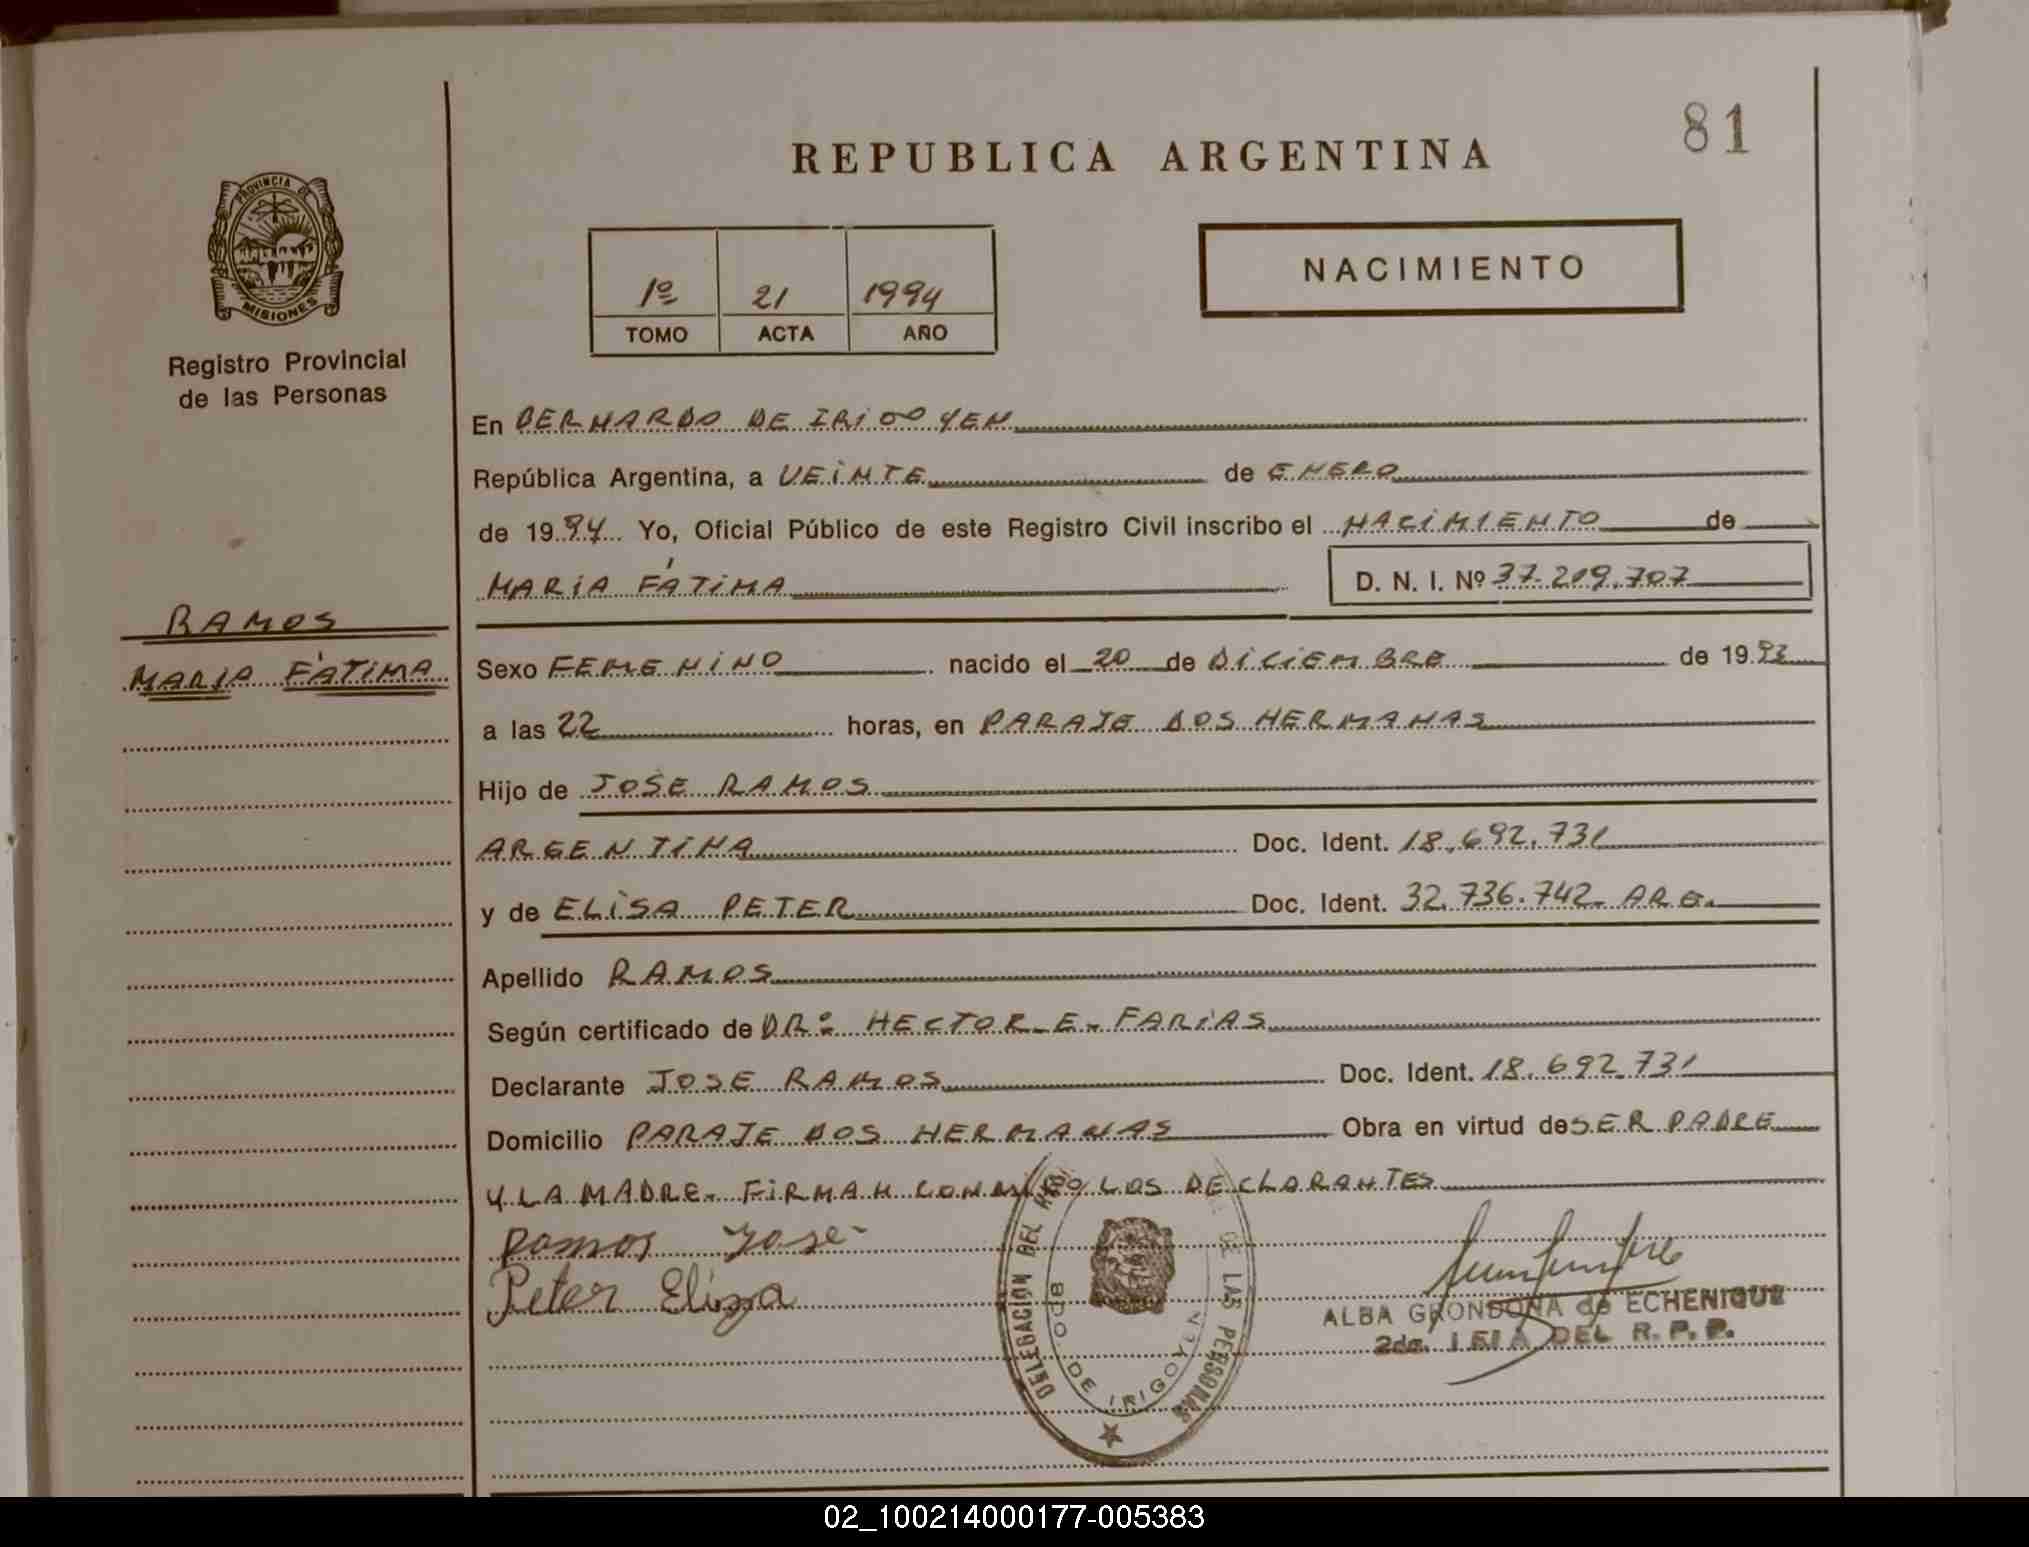 81
REPUBLICA ARGENTINA
PROVINCIA DE
MISIONES
Registro Provincial
de las Personas
1º 21 1994
TOMO ACTA AÑO
NACIMIENTO
En BERNARDO DE IRIGOYEN
República Argentina, a VEINTE de ENERO
de 1994 Yo, Oficial Público de este Registro Civil inscribo el NACIMIENTO de
MARIA FÁTIMA D. N. I. Nº 37.219.707
RAMOS
MARIA FÁTIMA
Sexo FEMENINO nacido el 20 de DICIEMBRE de 1993
a las 22 horas, en PARAJE DOS HERMANAS
Hijo de JOSE RAMOS
ARGENTINA Doc. Ident. 18.692.731
y de ELISA PETER Doc. Ident. 32.736.742- ARG.
Apellido RAMOS
Según certificado de DRº HECTOR E. FARIAS
Declarante JOSE RAMOS Doc. Ident. 18.692.731
Domicilio PARAJE DOS HERMANAS Obra en virtud de SER PADRE
Y LA MADRE. FIRMAN CONMIGO LOS DECLARANTES
Ramos José
Peter Eliza
DELEGACIÓN DEL DE LAS PERSONAS
BDO. DE IRIGOYEN
ALBA GRONDONA de ECHENIQUE
DEL R. P. P.
02_100214000177-005383